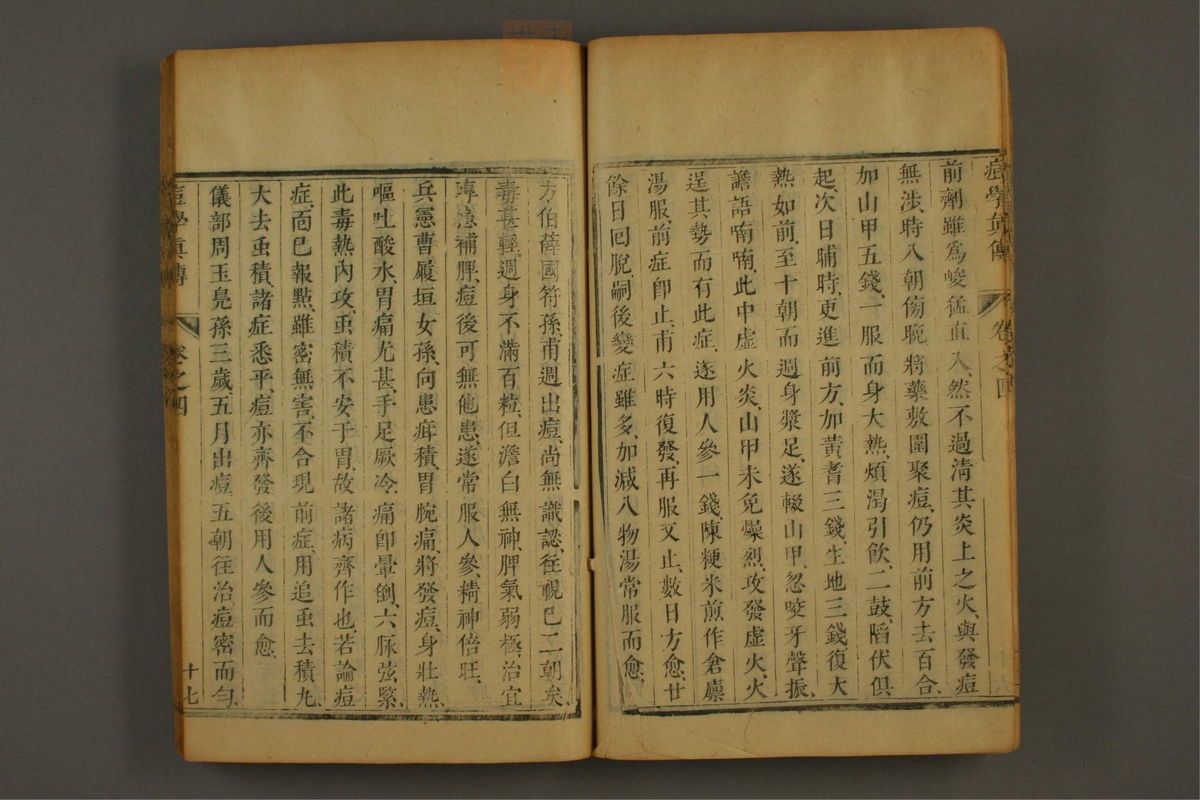 痘學真傳 卷之四
前劑雖爲峻猛直入、然不過淸其炎上之火、與發痘
無涉、時八朝傍晚、將藥敷圍聚痘、仍用前方去百合、
加山甲五錢、一服而身大熱、煩渴引飮、二鼓、陷伏俱
起、次日晡時、更進前方、加黃耆三錢、生地三錢、復大
熱如前、至十朝而週身漿足、遂輟山甲、忽咬牙聲振、
譫語喃喃、此中虛火炎、山甲未免燥烈、攻發虛火、火
逞其勢而有此症、遂用人參一錢、陳粳米煎作倉廩
湯服、前症卽止、甫六時復發、再服又止、數日方愈、廿
餘日回脫、嗣後變症雖多、加減八物湯常服而愈、
方伯薛國符孫、甫週出痘、尚無識認、往視已二朝矣、
毒甚輕、週身不滿百粒、但澹白無神、脾氣弱極、治宜
專意補脾、痘後可無他患、遂常服人參、精神倍旺、
兵憲曹履垣女孫、向患疳積、胃脘痛、將發痘、身壯熱、
嘔吐酸水、胃痛尤甚、手足厥冷、痛卽暈倒、六脈弦緊、
此毒熱內攻、虫積不安于胃、故諸病齊作也、若論痘
症、面已報點、雖密無害、不合現前症、用追虫去積丸、
大去虫積、諸症悉平、痘亦齊發、後用人參而愈、
儀部周玉鳧孫、三歲、五月出痘、五朝往治、痘密而勻、
痘學真傳 卷之四 十七